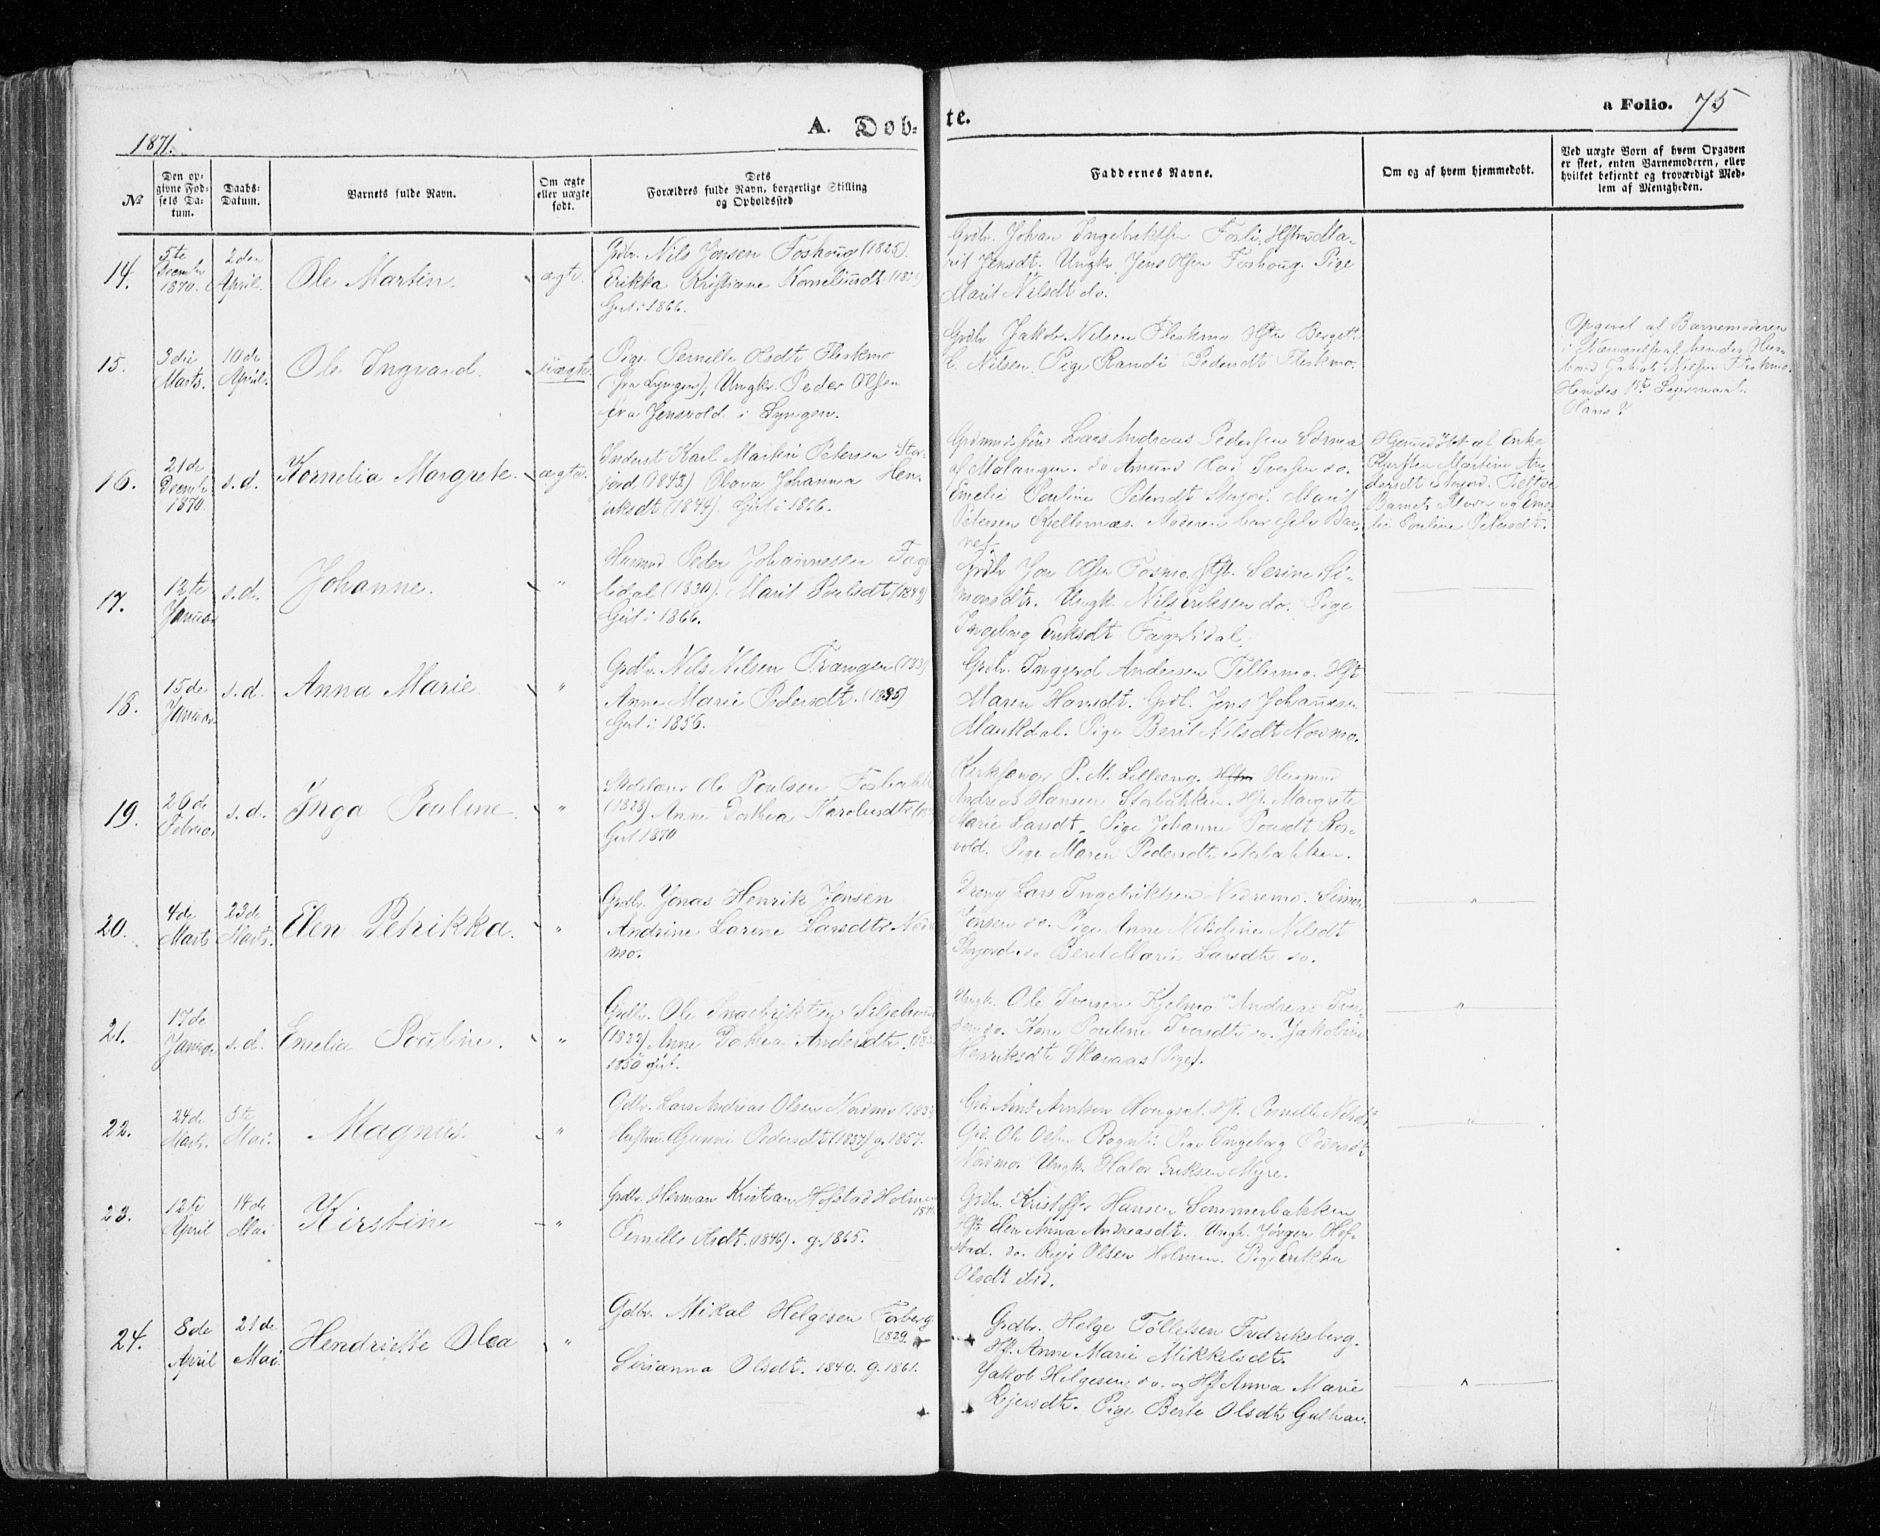 1871.
A. Døb-
te.
a Folio. 75
№
Den op-
givne Fød-
sels Da-
tum.
Daabs-
Datum.
Barnets fulde Navn.
Om ægte
eller uægte
født.
Dets
Forældres fulde Navn, borgerlige Stilling
og Opholdssted
Faddernes Navne.
Om og af hvem hjemmedøbt.
Ved uægte Børn af hvem Opgaven
er skeet, enten Barnemoderen, eller
hvilket bekjendt og troværdigt Med-
lem af Menigheden.
14.
5te
Decembr
1870.
2den
April.
Ole Martin.
ægte.
Grdbr. Nils Jonsen Foshoug (1825).
Erikka Kristiane Korneliusdt.
Gift i 1866.
Grdbr. Johan Ingebriktsen Fosli, Hstru Ma-
rit Jensdt. Ungk. Jens Olsen Foshoug. Pige
Marit Nilsdt do.
15.
3die
Marts.
10de
April.
Ole Ingvard.
uægte.
Pige Pernille Olsdt Fleskmo
(fra Lyngen), Ungk. Peder Olsen
fra Jensvold i Lyngen.
Grdbr Jakob Nilsen Fleskmo Hstru Bergitt
L. Nilsen. Pige Randi Pedersdt Fleskmo.
Opgivet af Barnemoderen
i Nærværelse af hendes Hus-
bond Jakob Nilsen Fleskmo.
Hendes 1ste Leiermaal.
Hans?
16.
21de
Decembr
1870.
s.d.
Kornelia Margrete.
ægte.
Inderst Karl Martin Petersen Stor-
fjord (1843) Olava Johanna Hen-
riksdt (1844). Gift i 1866.
Lars Andreas Pedersen
af Malangen. do Amund Iversen do.
Emelie Pauline Petersdt Marit
Petersen Kjellernæs. Moderen bar selv Bar-
net.
Hjemmedøbt af Enke
Martine An-
dersdt
Barnet og Eme-
lie Pauline Petersdt.
17.
12te
Januar
s.d.
Johanne.
"
Husmd Peder Johannessen Fag-
lidal (1830). Marit Poulsdt (1843)
Gift i 1866.
Grdbr Jon Olsen Fosmo. Hst. Serine Si-
monsdtr. Ungk. Nils Eriksen do. Pige
Ingeborg Eriksdt Fagerlidal.
18.
15de
Januar
s.d.
Anna Marie
"
Grdbr. Nils Nilsen Trangen (183
Anne Marie Pedersdt. (1835)
Gift i 1856.
Grdbr. Ingvard Andersen Fellesmo. Hst
Maren Hansdt. Grdb. Jens Johansen
Maukdal. Pige Berit Nilsdt Nordmo.
19.
26de
Februar
s.d.
Inga Pouline
"
Skolelærer Ole Poulsen Fosbakk
(1828) Anne Dorthea Karolusdt
Gift 1870
Kirksanger P. M. Lilleeng. Husmnd
Andreas Hansen Storbakken. Hst. Margrete
Marie Larsdt. Pige Johanne Poulsdt Ros-
vold. Pige Maren Pedersdt Storbakken.
20.
4de
Marts
23de
Marts.
Elen Petrikka.
"
Grdbr. Jonas Henrik Jonsen
Andrine Larine Larsdtr Nord
mo.
Dreng Lars Ingebriktsen Nedremo. Simon
Jonsen do. Pige Anne Nikoline Nilsdt
do Beret Marie Larsdt do.
21.
17de
Januar
s.d.
Emelia Pouline.
"
Grdbr. Ole Ingebriktsen
(1822) Anne Dorthea Andersdt.
1850 gift.
Ungk. Ole Iversen Kjelmo Andreas Iver-
sen do. Kone Pouline Iversdt do. Jakobine
Henriksdt Skavaas (Pige).
22.
24de
Marts.
5te
Mai.
Magnus.
"
Gdbr. Lars Andreas Olsen Nordmo (1832
Hustru Gunni Pedersdt (1837) g. 1857.
Grd. Arnt Arntsen Hougset. Hst. Pernille Nilsdt.
Grd. Ole Olsen Rognli. Pige Ingeborg Pedersdt
Nordmo. Ungk. Halvor Eriksen Myre.
23.
12te
April
14de
Mai
Kirstine
"
Grdbr. Herman Kristian Hofstad Holmen
Pernille Asdt. (1846). g. 1865.
Grdbr. Kristoffer Hansen Sommerbakken
Hst Elen Anna Andreasdt. Ungk. Jørgen Hof-
stad. do. Rejer Olsen Holmen. Pige Erikka
Olsdt ibid.
24.
8de
April
21de
Mai.
Hendriette Olea
"
Gdbr. Mikal Helgesen Forberg
1829.
Sirianna Olsdt. 1840. g. 1861.
Grdbr. Helge Tøllefsen Fredriksberg.
Hst. Anne Marie Mikkelsdt.
Jakob Helgesen do. og Hst Anna Marie
Rejersdt. Pige Berte Olsdt Gulhav.